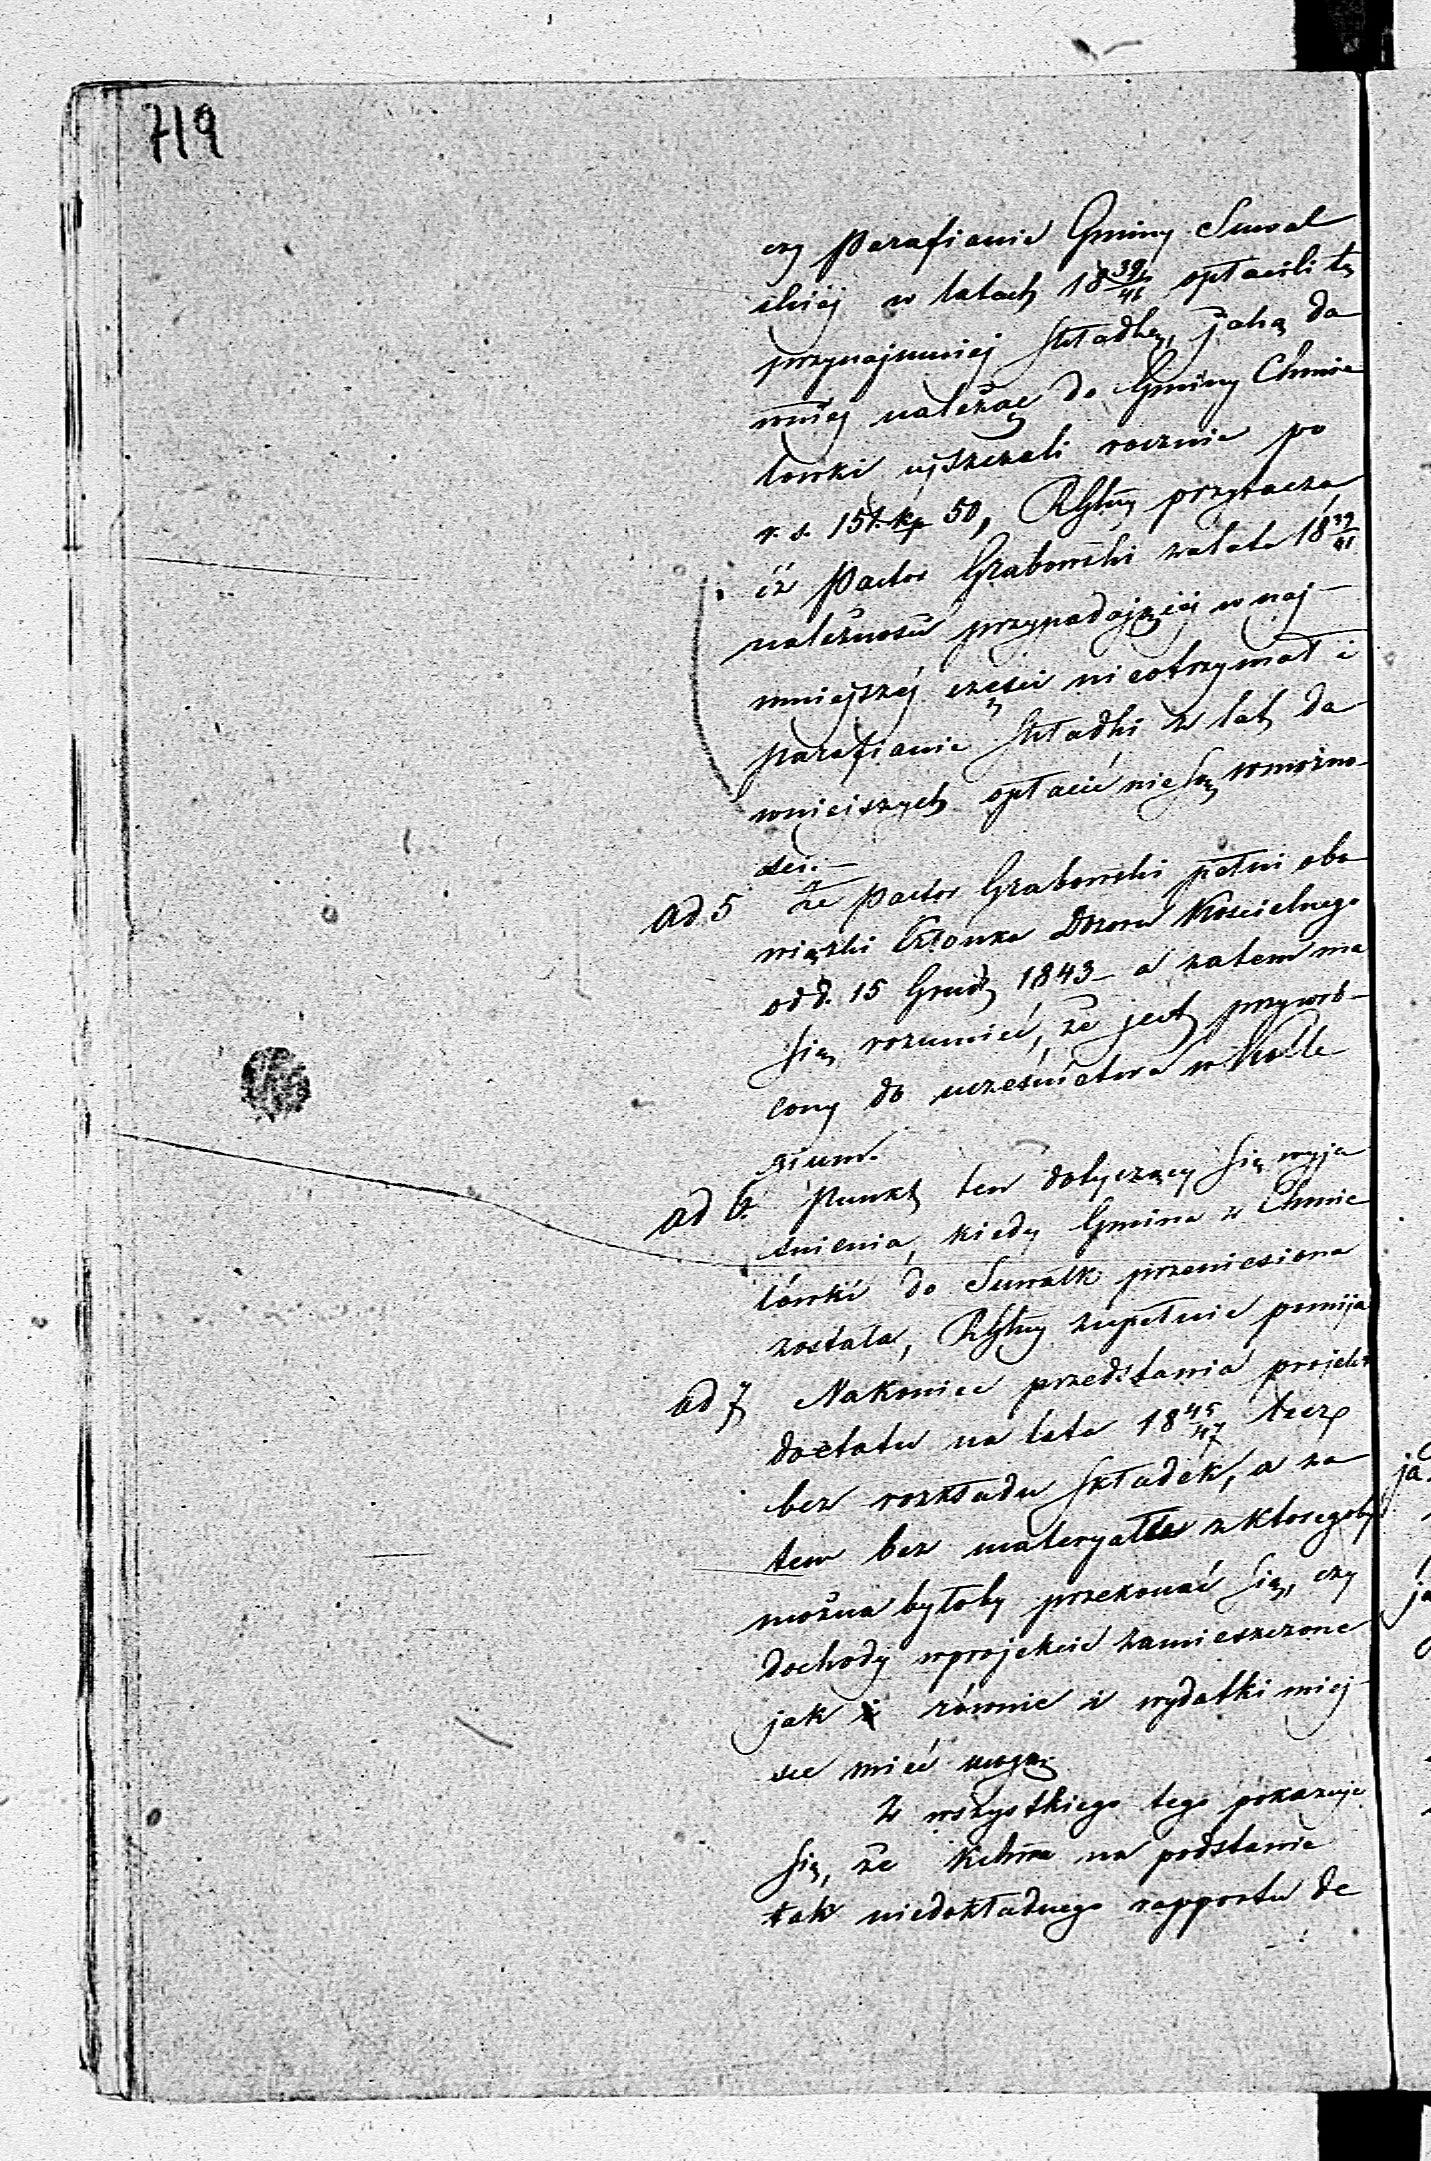 719
czy Parafianie Gminy Suwal
skiéj w latach 18 39/41 opłacili tę
przynajmniéj składkę, jaką da
wniéj należąc do Gminy Chmie
lowki uiszczali rocznie po
r. s. 151 kp 50, RGłny przytacza
iż Pastor Grabowski za lata 18 39/41
należności przypadającéj w naj-
mniejszéj części nieotrzymał i
parafianie składki z lat da
wniejszych opłacić nie są w możno-
ści.—
ad 5 że Pastor Grabowski pełni obo
wiązki Członka Dozoru Kościelnego
od d. 15 Grud. 1843 - a zatem ma
się rozumieć, że jest przywró-
cony do uczestnictwa w Kolle
gium.
ad 6. Punkt ten dotyczący się wyja
śnienia, kiedy Gmina z Chmie
lówki do Suwałk przeniesiona
została, RGłny zupełnie pomija
ad 7 Nakoniec przedstawia projekt
do etatu na lata 18 45/47 lecz
bez rozkładu składek, a za
tem bez materyału z któregoby
można byłoby przekonać się, czy
dochody w projekcie zamieszczone
jak równie i wydatki miej-
sce mieć mogą.
Z wszystkiego tego pokazuje
się, że na podstawie
tak niedokładnego rapportu de